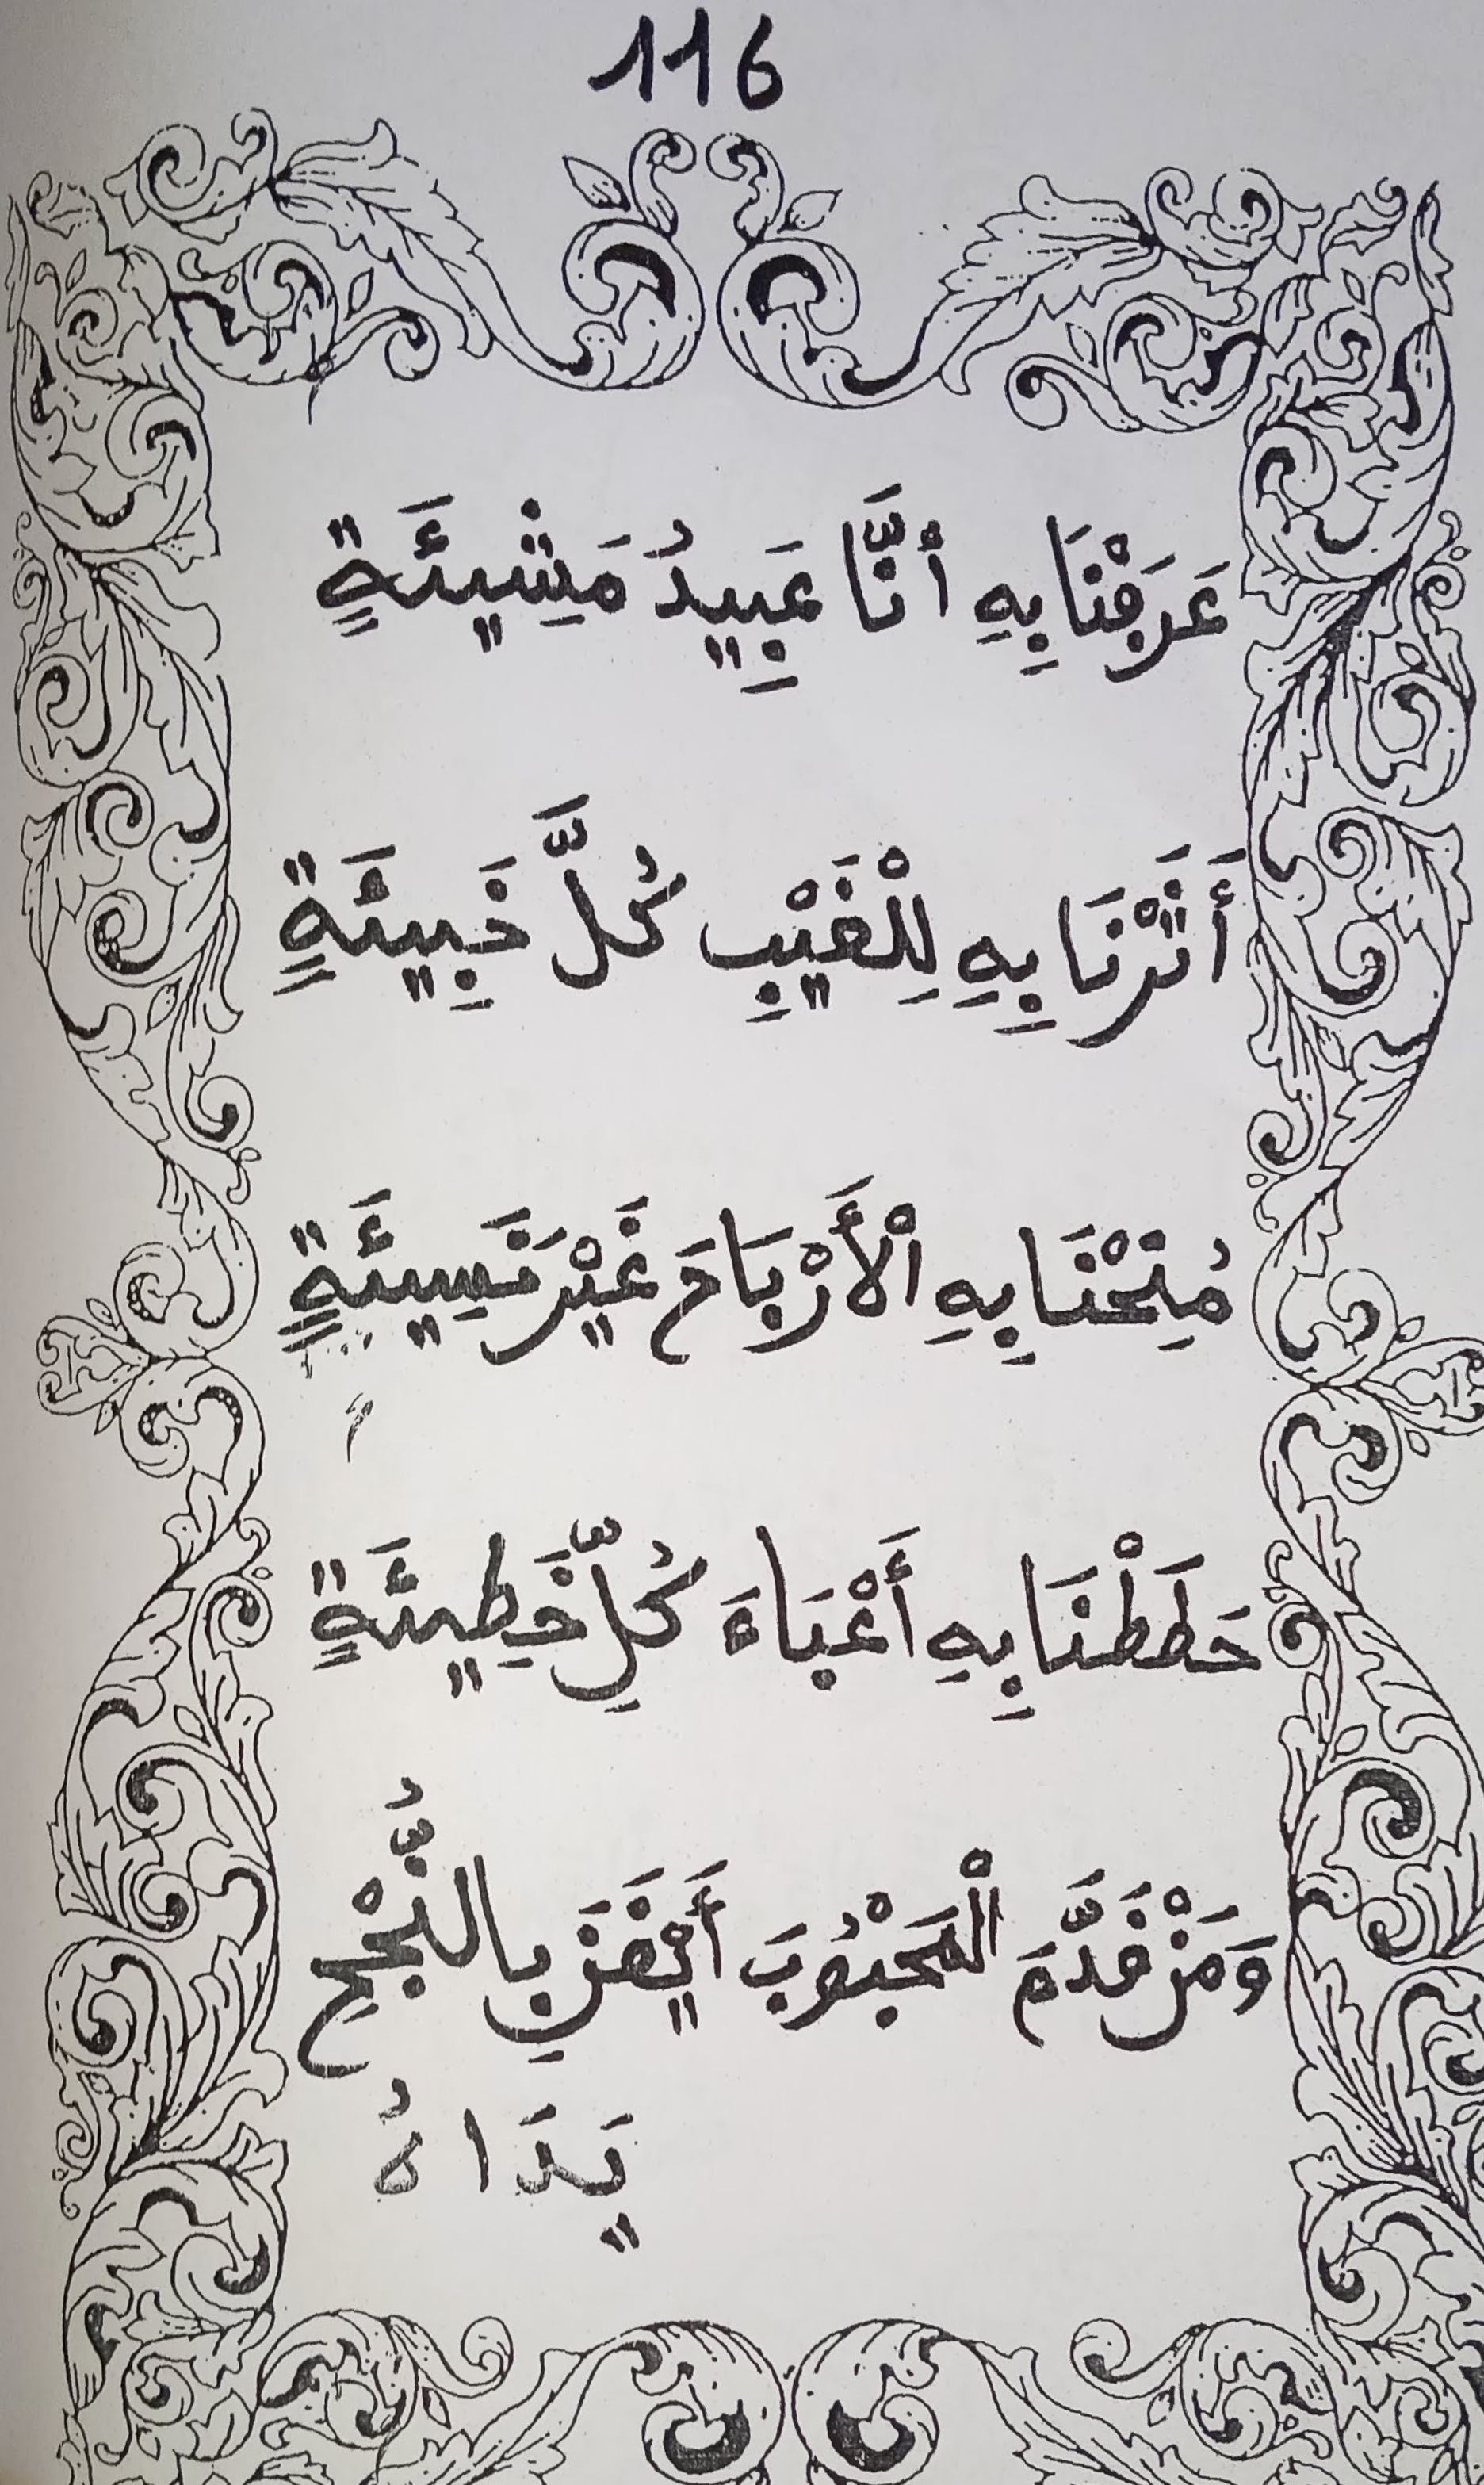 116
عَرَفْنَا بِهِ أَنَّا عَبِيدُ مَشِيئَةٍ
أَثَرْنَا بِهِ لِلْغَيْبِ كُلَّ خَبِيئَةٍ
مُنِحْنَا بِهِ الْأَرْبَاحَ غَيْرَ نَسِيئَةٍ
حَطَطْنَا بِهِ أَعْبَاءَ كُلِّ خَطِيئَةٍ
وَمَنْ قَدَّمَ الْمَحْبُوبَ أَيْقَنَ بِالنُّجْحِ
يَدَاهُ